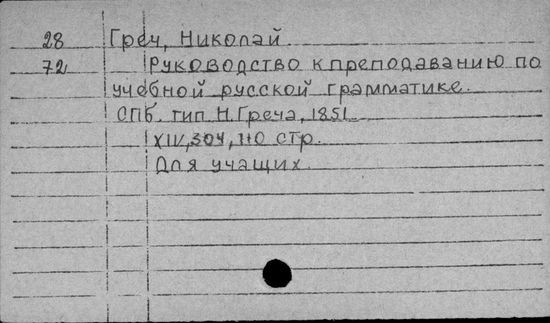 28 Греч, Николай
72 Руководство к преподаванию по
учебной русской грамматике.
СПб. тип. Н. Греча, 1851
XIV, 304, 110 стр.
Для учащих.